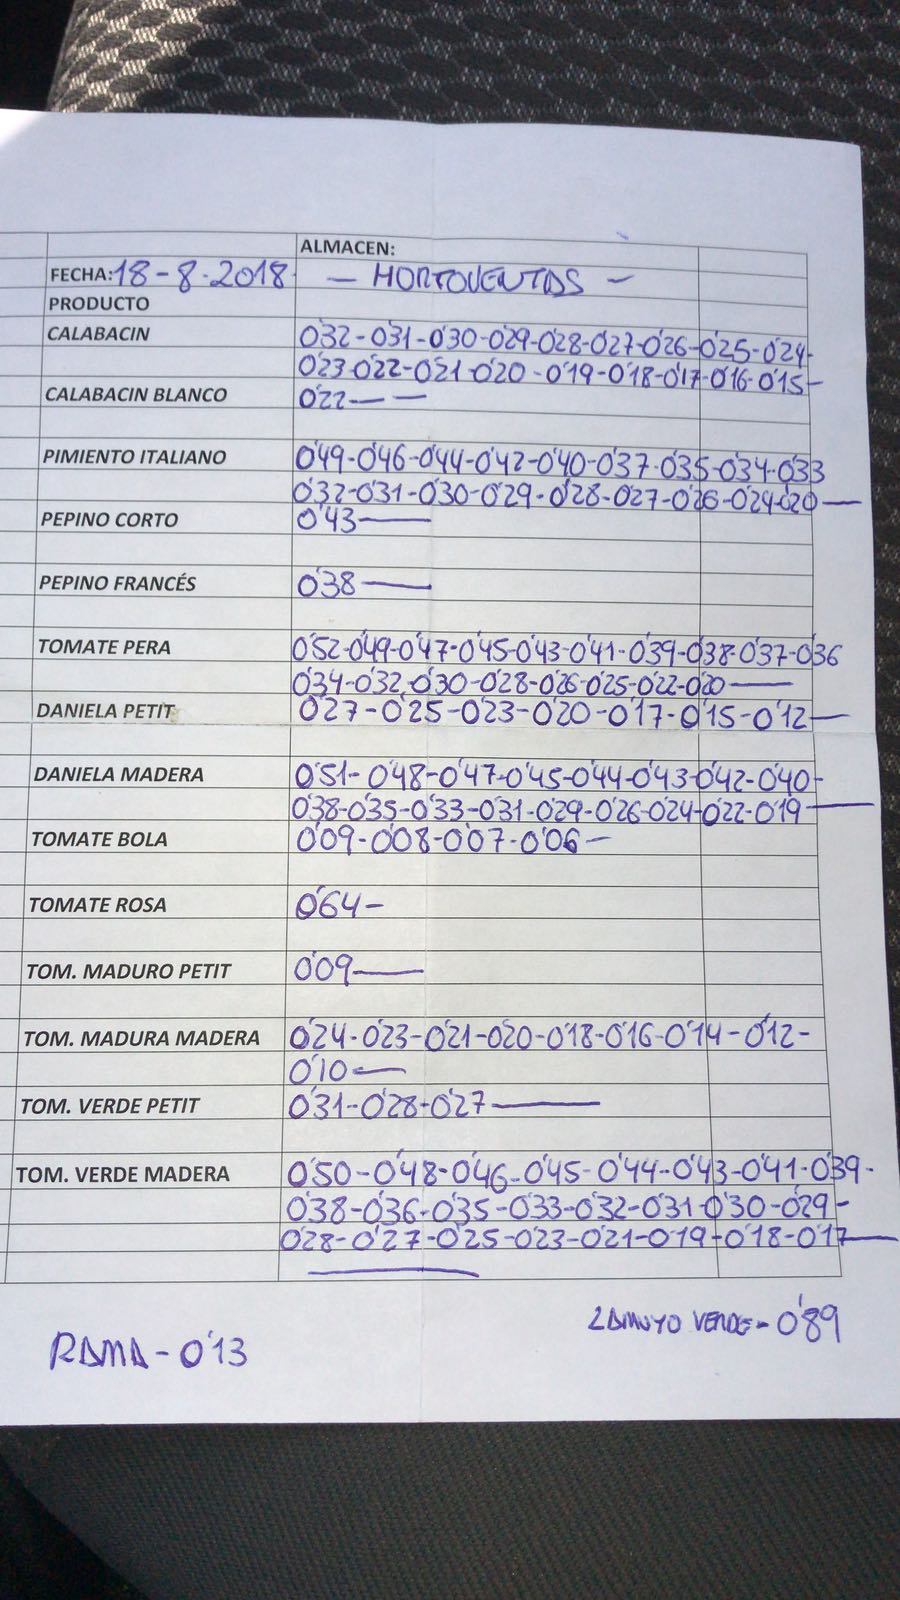 ALMACEN:
FECHA: 18-8-2018 - HORTOVENTAS -
PRODUCTO
CALABACIN 0'32-0'31-0'30-0'29-0'28-0'27-0'26-0'25-0'24-
0'23-0'22-0'21-0'20-0'19-0'18-0'17-0'16-0'15-
CALABACIN BLANCO 0'22— —
PIMIENTO ITALIANO 0'49-0'46-0'44-0'42-0'40-0'37-0'35-0'34-0'33
0'32-0'31-0'30-0'29-0'28-0'27-0'26-0'24-0'20—
PEPINO CORTO 0'43—
PEPINO FRANCÉS 0'38—
TOMATE PERA 0'52-0'49-0'47-0'45-0'43-0'41-0'39-0'38-0'37-0'36
0'34-0'32-0'30-0'28-0'26-0'25-0'22-0'20—
DANIELA PETIT 0'27-0'25-0'23-0'20-0'17-0'15-0'12—
DANIELA MADERA 0'51-0'48-0'47-0'45-0'44-0'43-0'42-0'40-
0'38-0'35-0'33-0'31-0'29-0'26-0'24-0'22-0'19—
TOMATE BOLA 0'09-0'08-0'07-0'06—
TOMATE ROSA 0'64-
TOM. MADURO PETIT 0'09—
TOM. MADURA MADERA 0'24-0'23-0'21-0'20-0'18-0'16-0'14-0'12-
0'10—
TOM. VERDE PETIT 0'31-0'28-0'27—
TOM. VERDE MADERA 0'50-0'48-0'46-0'45-0'44-0'43-0'41-0'39-
0'38-0'36-0'35-0'33-0'32-0'31-0'30-0'29-
0'28-0'27-0'25-0'23-0'21-0'19-0'18-0'17—
LAMUYO VERDE-0'89
RAMA-0'13